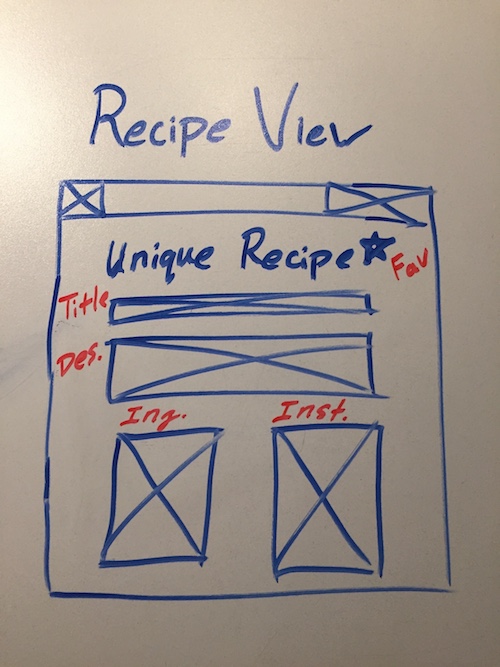 Recipe View
Unique Recipe
Fav
Title
Des.
Ing. Inst.